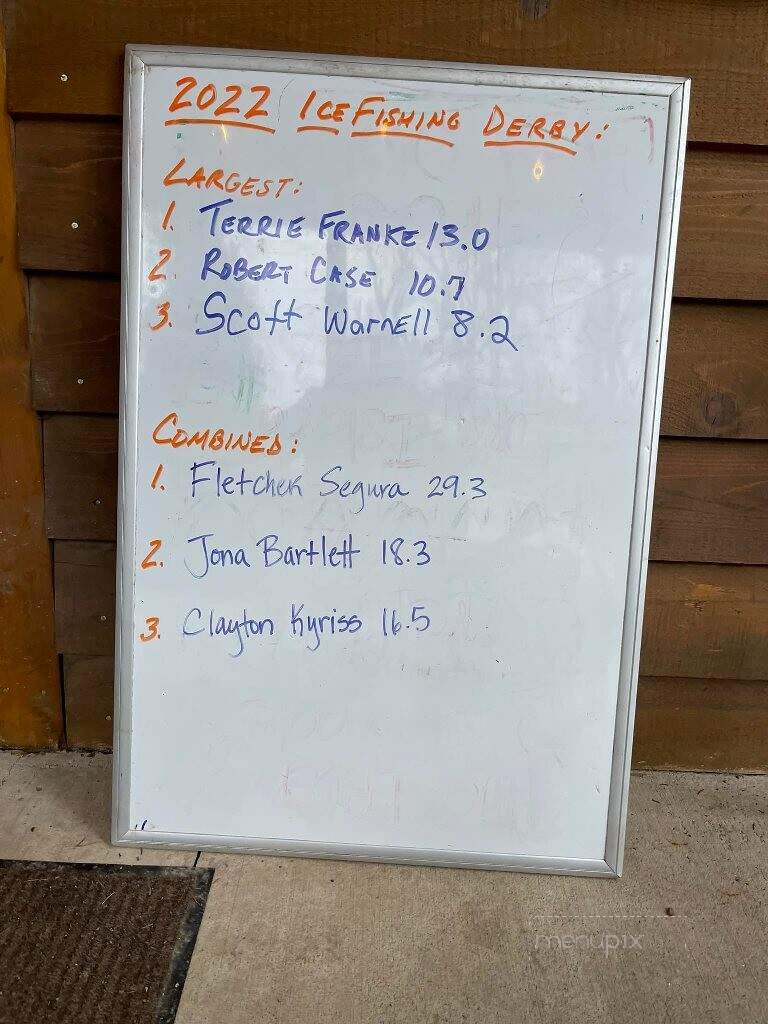 2022 ICE FISHING DERBY:
LARGEST:
1. TERRIE FRANKE 13.0
2. ROBERT CASE 10.7
3. Scott WarnEll 8.2
COMBINED:
1. Fletcher Segura 29.3
2. Jona Bartlett 18.3
3. Clayton Kyriss 16.5
menupix